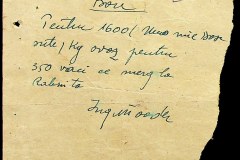 Bon
Pentru 1600 (Una mie șase
sute) Kg orez pentru
350 vaci ce merg la
Rabnita